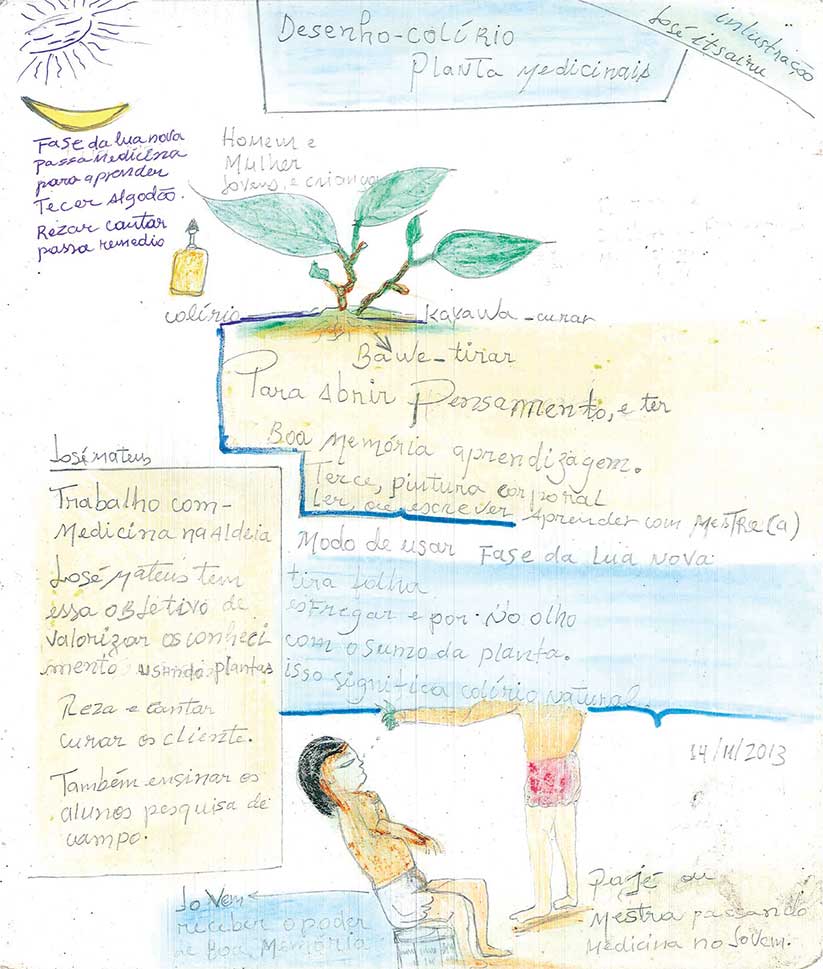 Desenho-colírio
Planta medicinais
inlustração
José itsairu
Fase da lua nova
passa medicina
para aprender
Tecer Algodão.
Rezar cantar
passa remedio
Homem e
Mulher
Jovens, e crianças
colírio
Kayawa - curar
Bawe - tirar
Para abrir Pensamento, e ter
Boa memória aprendizagem.
Terce, pintura corporal
Ler, ou escrever Aprender com mestre(a)
José mateus
Trabalho com-
Medicina na Aldeia
José Mateus tem
essa objetivo de
valorizar os conheci
mento usando plantas
Reza e cantar
curar os cliente.
Também ensinar os
alunos pesquisa de
campo.
Modo de usar Fase da Lua Nova:
tira folha
esfregar e por no olho
com o sumo da planta.
isso significa colírio natural.
14/11/2013
Jovem
receber o poder
de Boa, Memória
Pajé ou
Mestra passando
Medicina no Jovem.